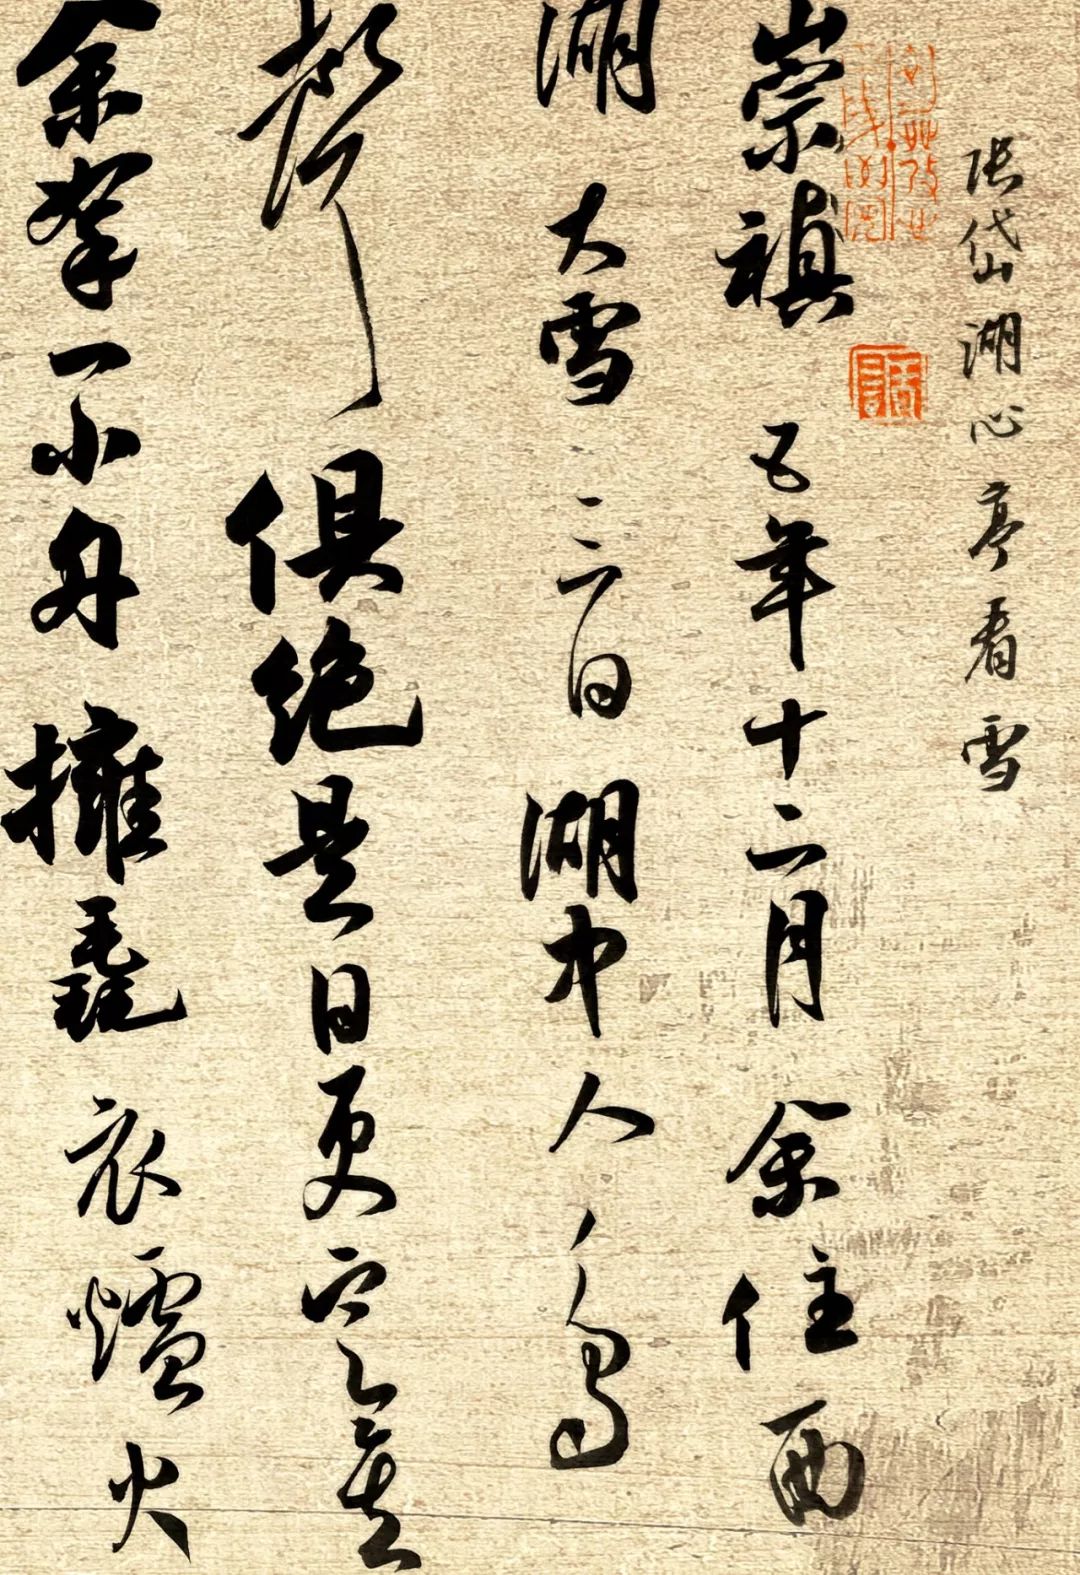 張岱湖心亭看雪
崇禎五年十二月余住西
湖大雪三日湖中人鳥
聲俱絕是日更定矣
余拏一小舟擁毳衣爐火